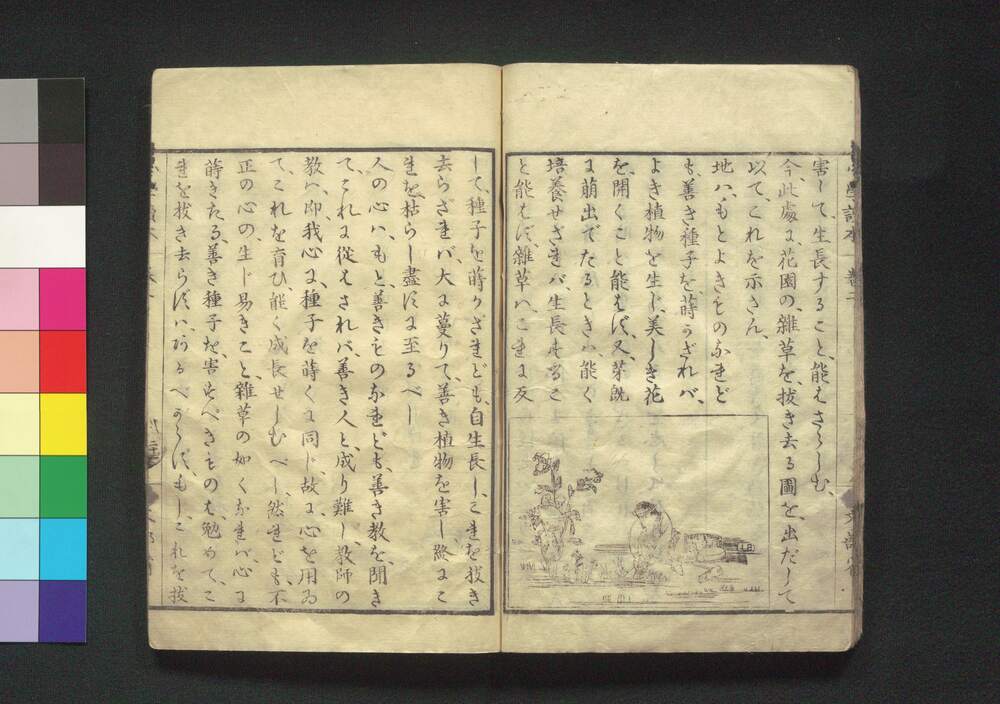 害して、生長すること、能はさらしむ、
今、此處に、花園の、雜草を、拔き去る圖を、出だして
以て、これを示さん、
地ハ、もとよきものなれど
も、善き種子を、蒔かざれバ、
よき植物を生じ、美しき花
を、開くこと能はず、又、芽既
に萠出でたるときハ、能く
培養せざれバ、生長するこ
と能はず、雜草ハ、これに反
して、種子を蒔かざれども、自生長し、これを拔き
去らざれバ、大に蔓りて、善き植物を害し、終にこ
れを、枯らし盡すに至るべし
人の心ハ、もと善きものなれども、善き教を、聞き
て、これに從はされバ、善き人と、成り難し、教師の
教ハ、即我心に、種子を蒔くに同じ、故に心を用ゐ
て、これを育ひ、能く成長せしむべし、然れども、不
正の心の、生じ易きこと、雜草の如くなれバ、心に
蒔きたる、善き種子を、害すべきものは、勉めて、こ
れを拔き去らずハ、あるべからず、もし、これを拔